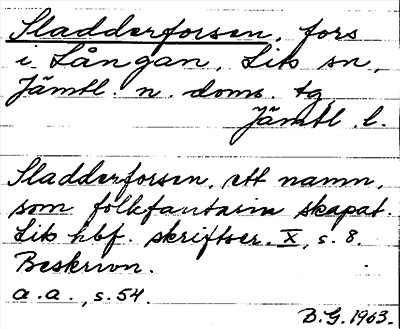 Sladderforsen, fors
i Långan, Lits sn,
Jämtl. n. doms. tg,
Jämtl. l.
Sladderforsen, ett namn,
som folkfantasin skapat.
Lits hbf. skriftser. X, s. 8.
Beskrivn.
a.a., s. 54.
B.G. 1963.